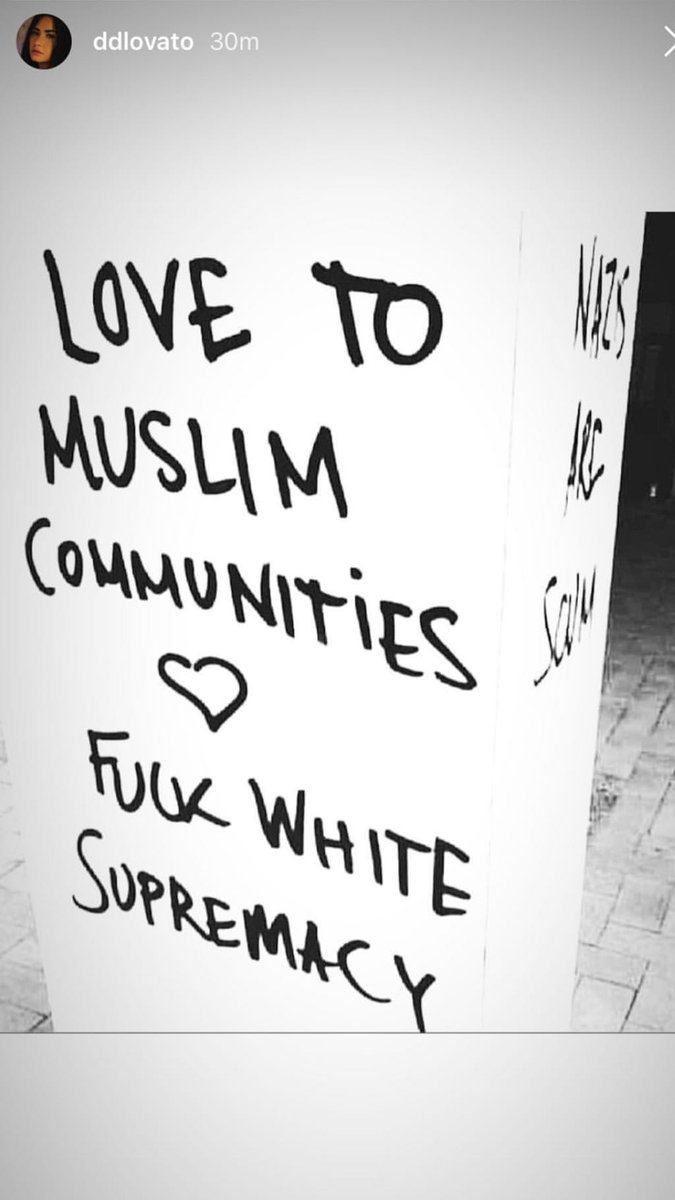 ddlovato 30m
LOVE TO
MUSLIM
COMMUNITIES
FUCK WHITE
SUPREMACY
NAZIS
ARE
SCUM